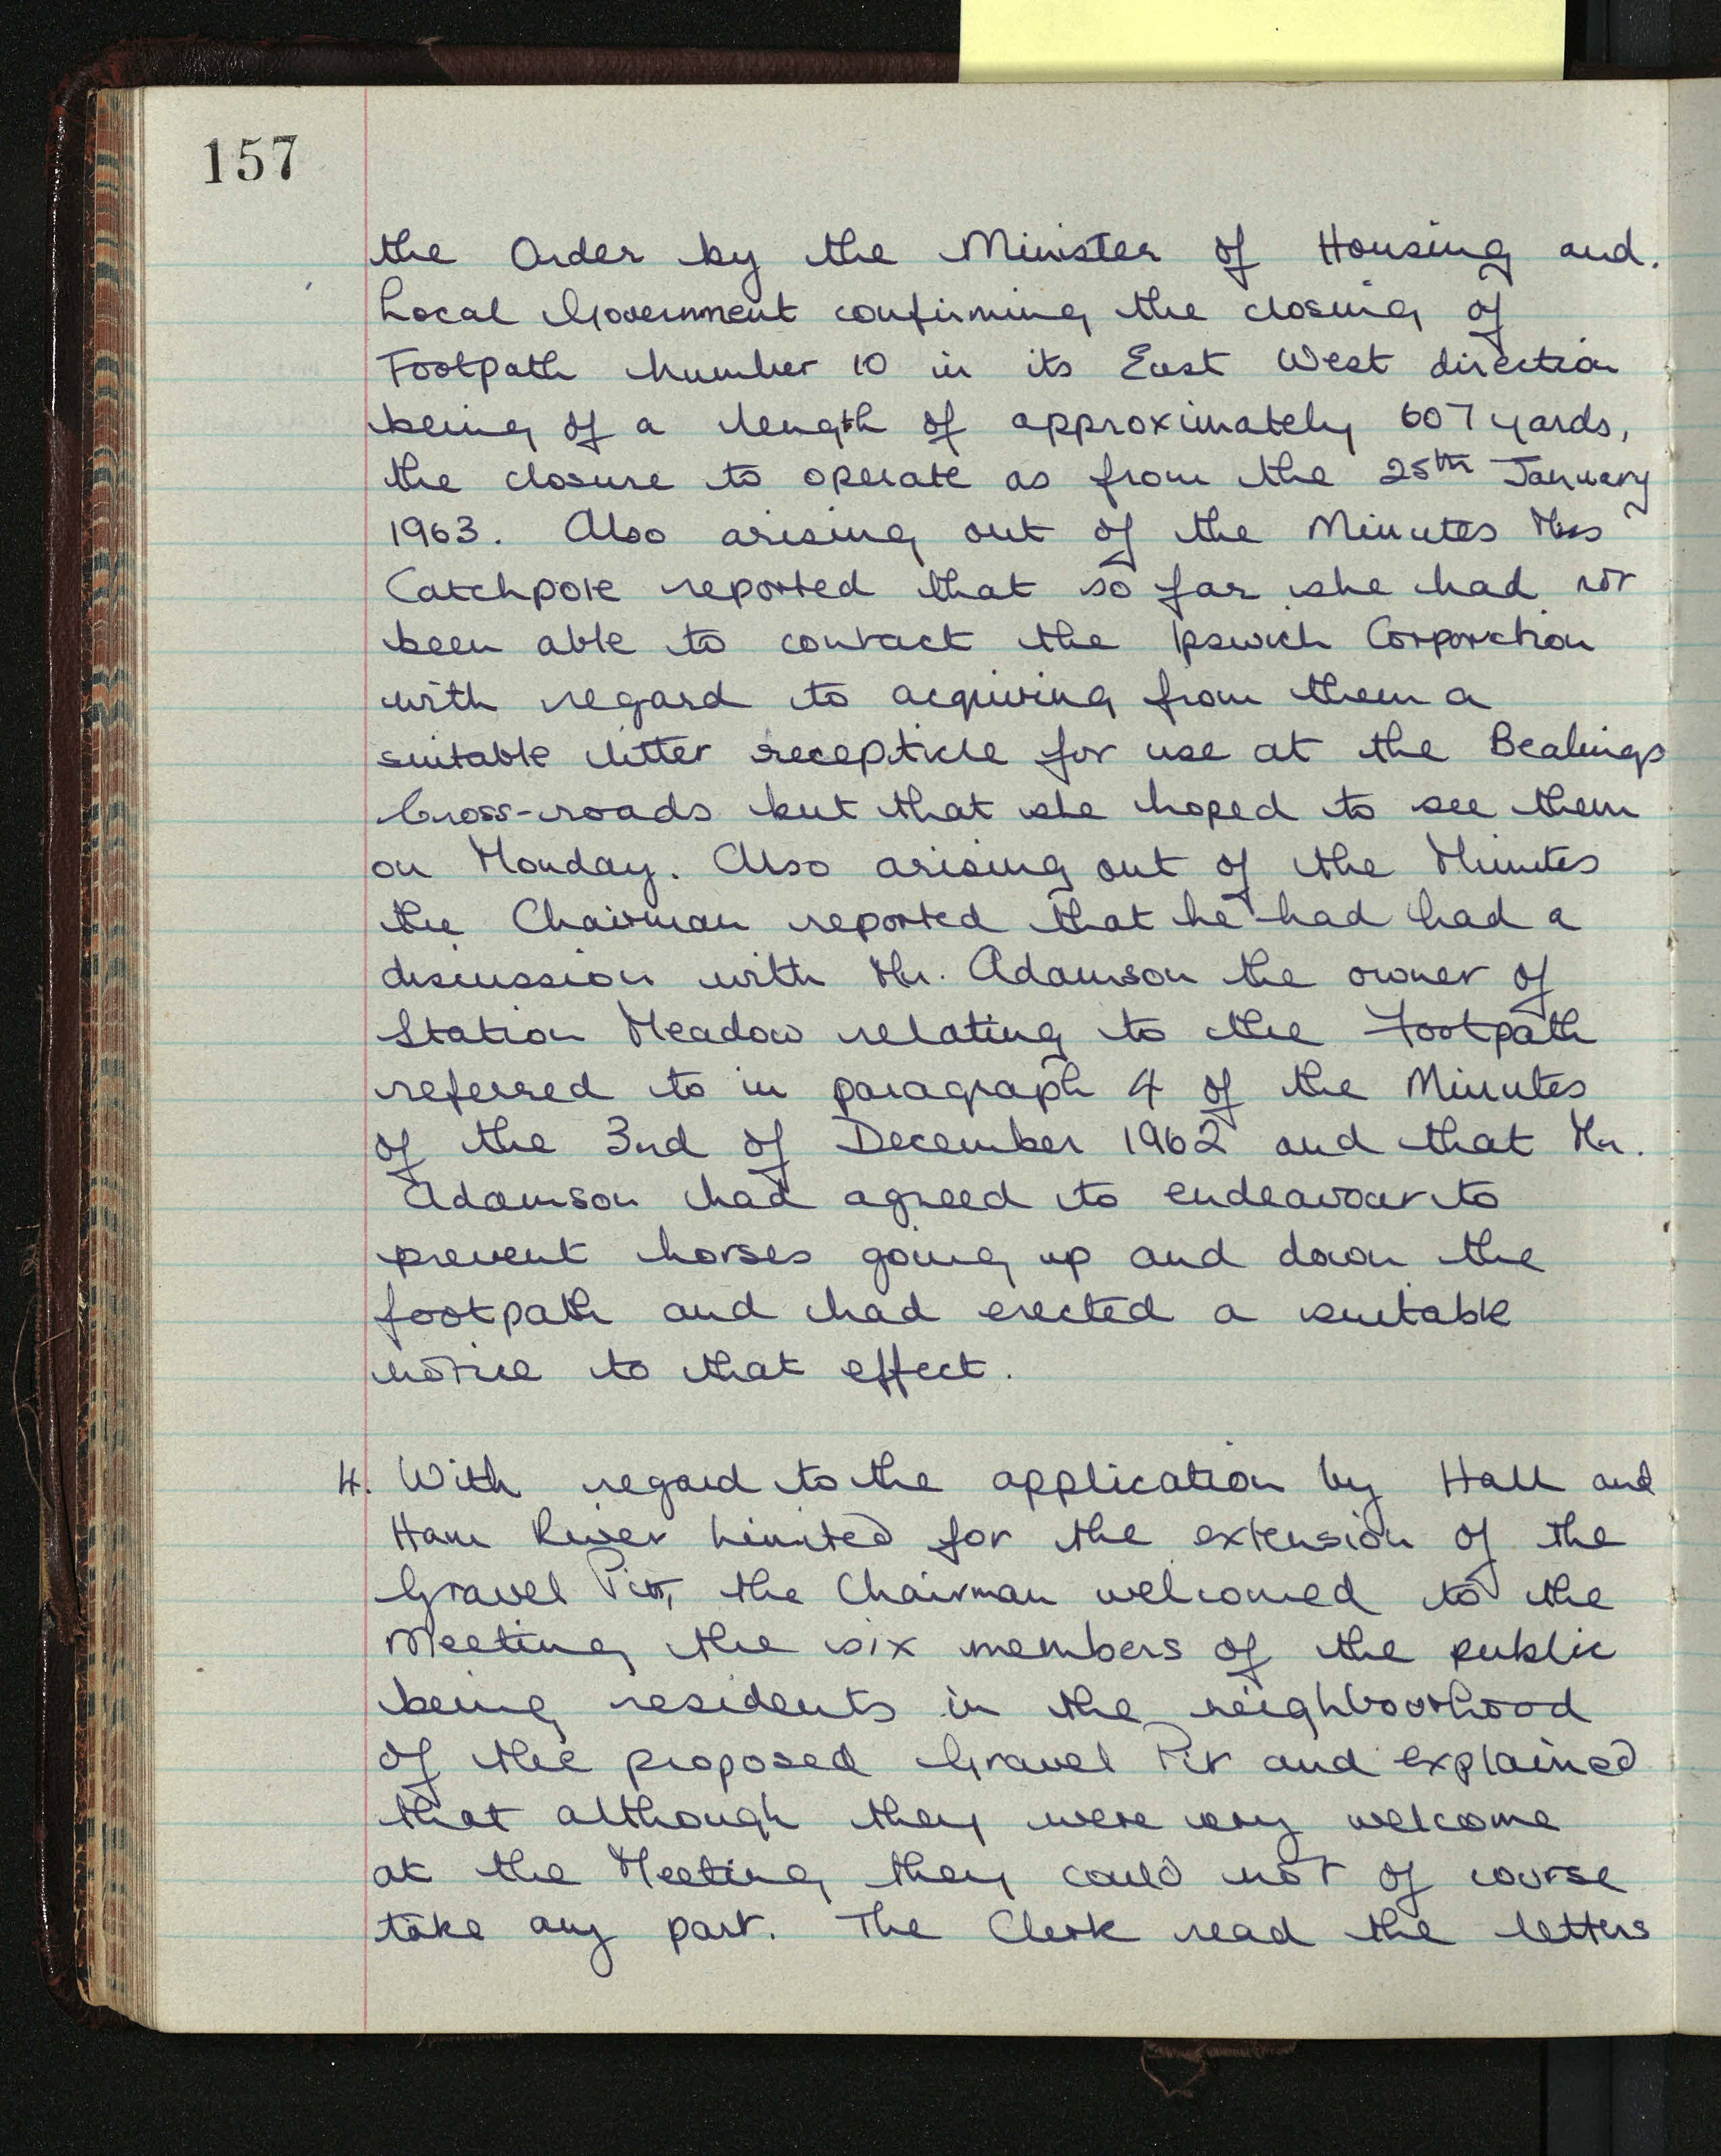 157
the Order by the Minister of Housing and.
Local Government confirming the closing of
Footpath Number 10 in its East West direction
being of a length of approximately 607 yards,
the closure to operate as from the 25th January
1963. Also arising out of the Minutes Miss
Catchpole reported that so far she had not
been able to contact the Ipswich Corporation
with regard to acquiring from them a
suitable litter recepticle for use at the Bealings
Cross-roads but that she hoped to see them
on Monday. Also arising out of the Minutes
the Chairman reported that he had had a
discussion with Mr. Adamson the owner of
Station Meadow relating to the Footpath
referred to in paragraph 4 of the Minutes
of the 3nd of December 1962 and that Mr.
Adamson had agreed to endeavour to
prevent horses going up and down the
footpath and had erected a suitable
notice to that effect.
4. With regard to the application by Hall and
Ham River Limited for the extension of the
Gravel Pit, the Chairman welcomed to the
Meeting the six members of the public
being residents in the neighbourhood
of the proposed Gravel Pit and explained
that although they were very welcome
at the Meeting they could not of course
take any part. The Clerk read the letters